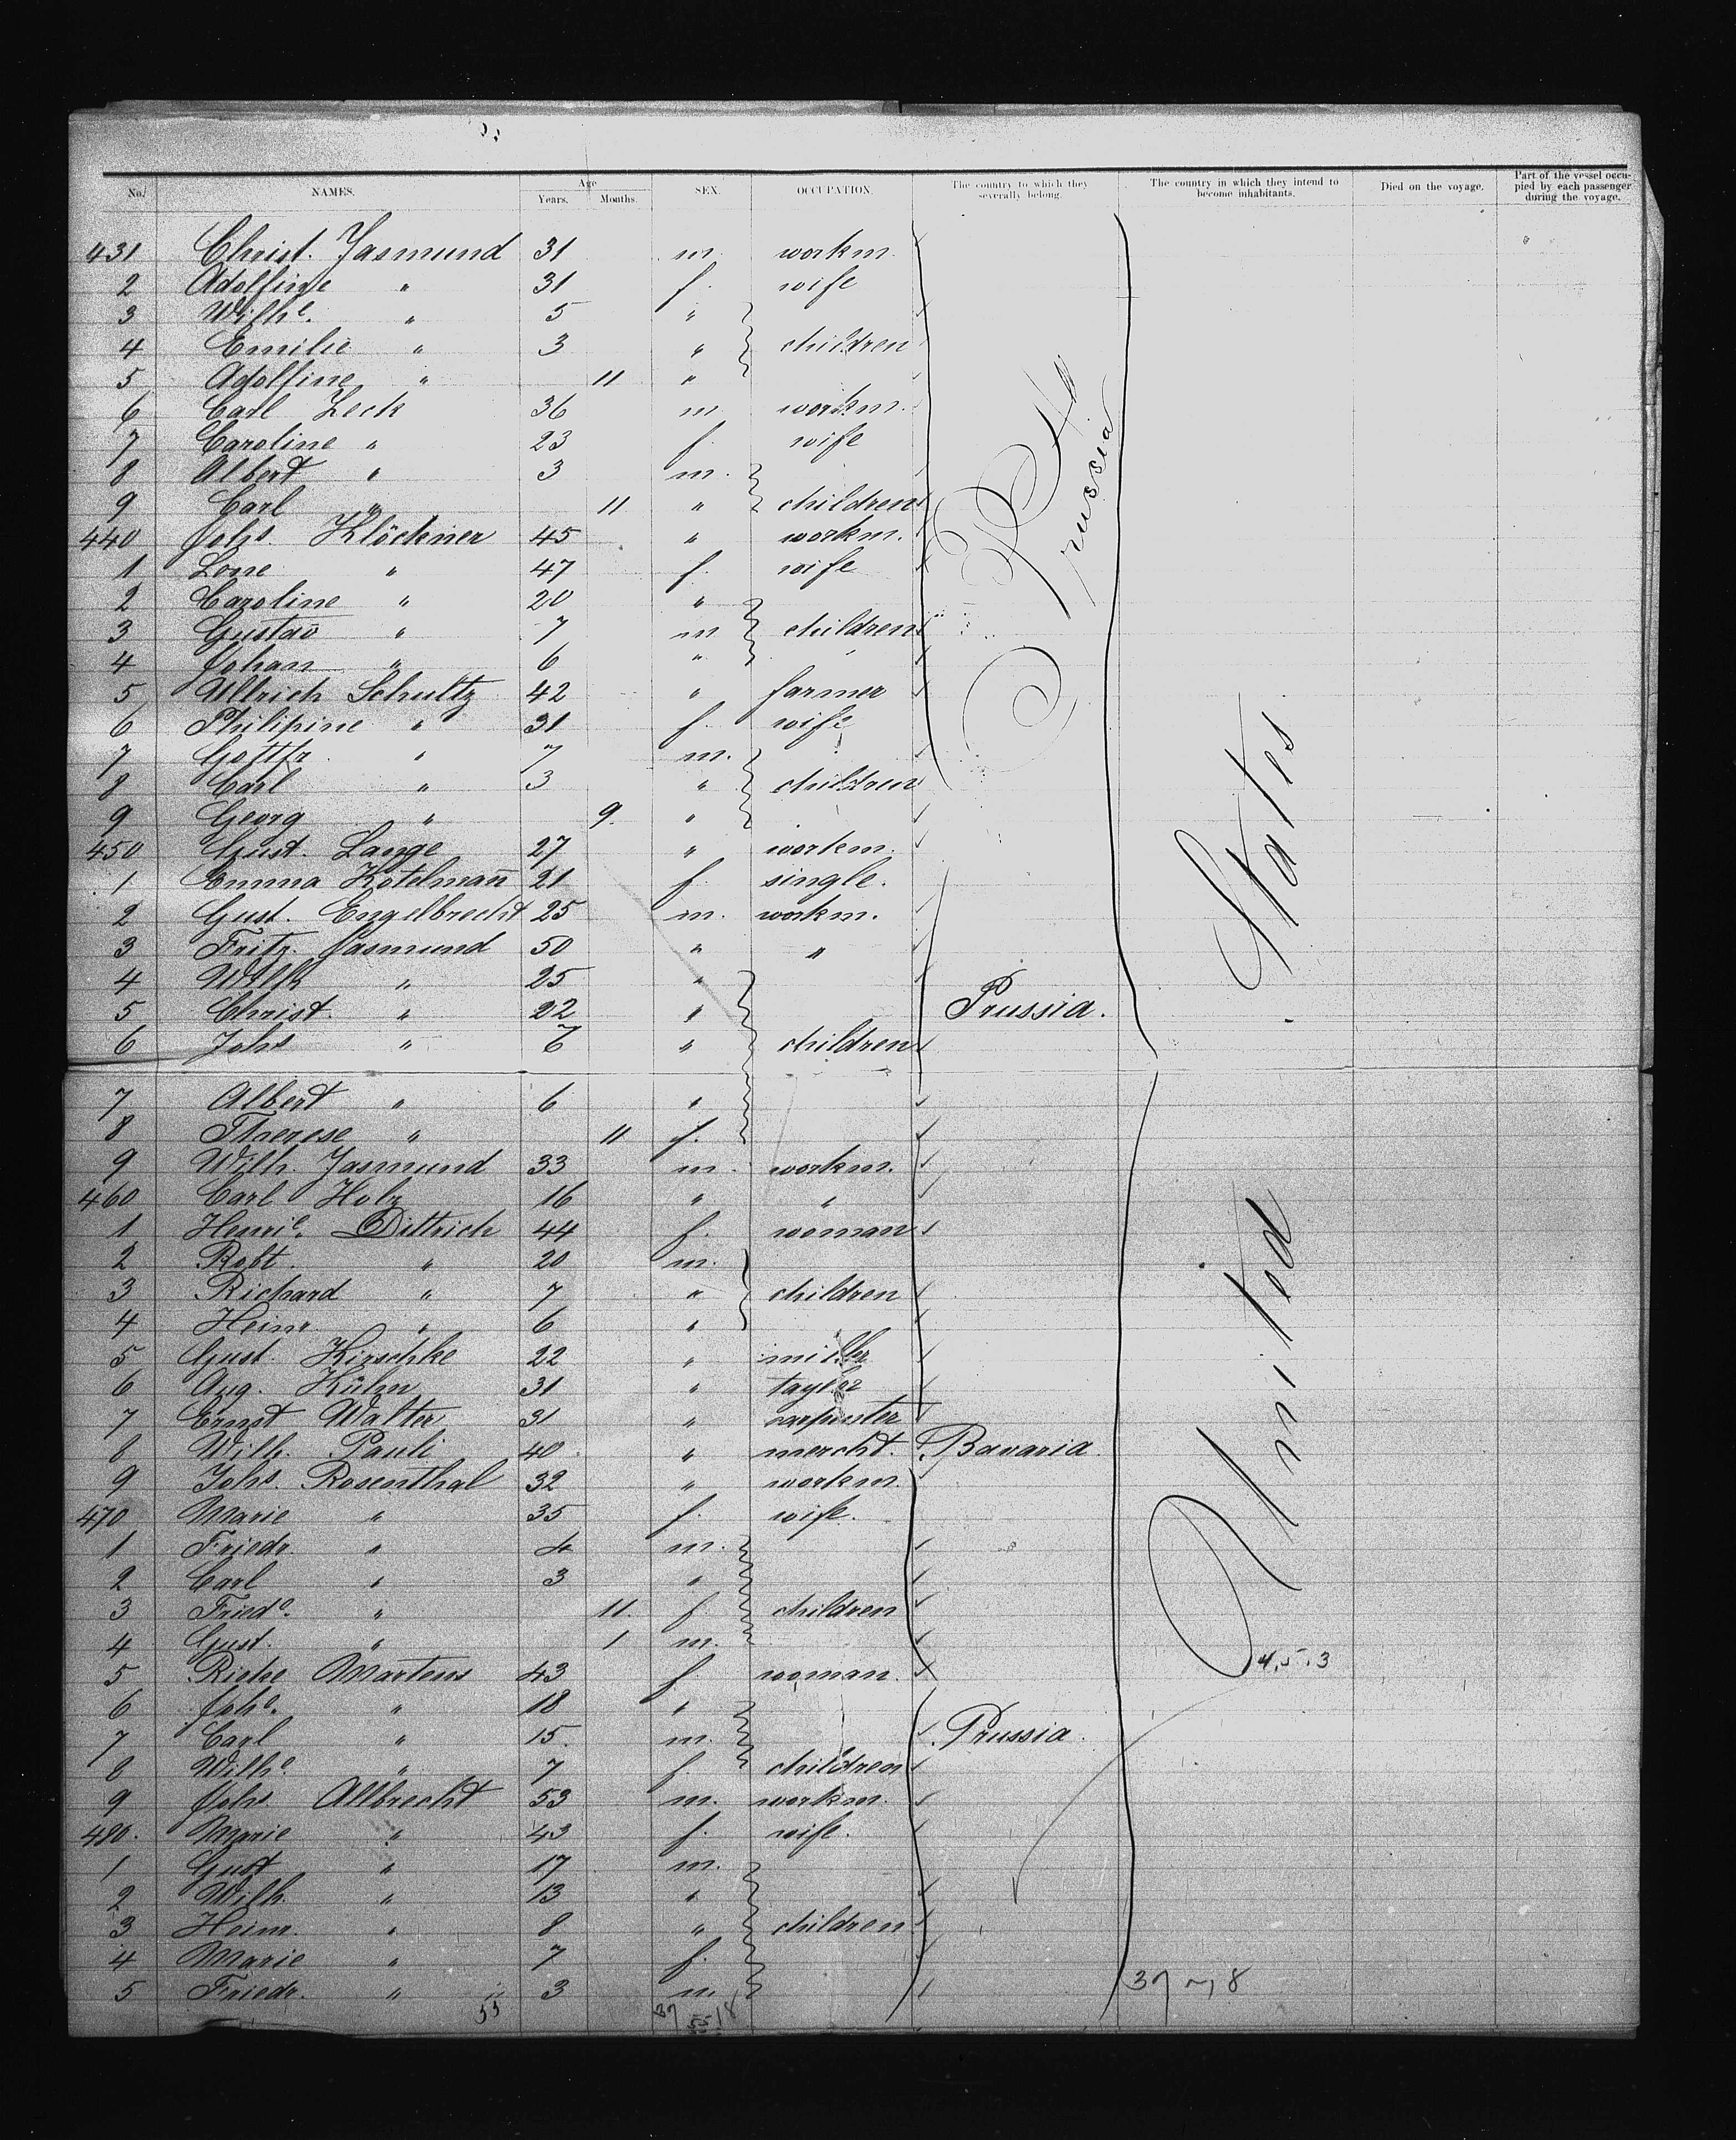 No. NAMES. Age Years. Months. SEX. OCCUPATION. The country to which they severally belong. The country in which they intend to become inhabitants. Died on the voyage. Part of the vessel occupied by each passenger during the voyage.
431 Christ. Jasmund 31 m. workm.
2 Adolfine " 31 f. wife
3 Wilhe. " 5 "
4 Emilie " 3 " children
5 Adolfine " 11 "
6 Carl Zeck 36 m workm.
7 Caroline " 23 f. wife
8 Albert " 3 m.
9 Carl " 11 " children
440 Johs. Klöckner 45 " workm.
1 Lone " 47 f. wife
2 Caroline " 20 "
3 Gustav " 7 m children
4 Johan " 6 "
5 Ullrich Schultz 42 " farmer
6 Philipine " 31 f. wife
7 Gottfr. " 7 m.
8 Carl " 3 " children
9 Georg " 9. "
450 Gust. Lange 27 " workm.
1 Emma Kotelmañ 21 f. single.
2 Gust. Engelbrecht 25 m. workm.
3 Fritz Jasmund 50 " "
4 Wilh " 25 "
5 Christ. " 22 " Prussia.
6 Johs " 7 " children
7 Albert " 6 "
8 Therese " 11 f.
9 Wilh. Jasmund 33 m. workm.
460 Carl Holz 16 " "
1 Henrie. Dittrich 44 f. woman
2 Robt. " 20 m.
3 Richard " 7 " children
4 Heinr. " 6 "
5 Gust. Hirschke 22 " miller
6 Aug. Kühn 31 " taylor
7 Ernst Walter 31 " carpenter
8 Wilh. Pauli 40 " mercht. Bavaria
9 Johs. Rosenthal 32 " workm.
470 Marie " 35 f. wife.
1 Friedr. " 4 m.
2 Carl " 3 "
3 Friede. " 11. f children
4 Gust. " 1 m.
5 Rieke Martens 43 f. woman.
6 Johe. " 18 "
7 Carl " 15. m. Prussia
8 Wilhe. " 7 f. children
9 Johs. Allbrecht 53 m. workm.
480. Marie " 43 f. wife.
1 Gust " 17 m.
2 Wilh. " 13 "
3 Heinr. " 8 " children
4 Marie " 7 f.
5 Friedr. " 3 m.
Prussia
United States
4.5.3
37 - 18
55 37 18